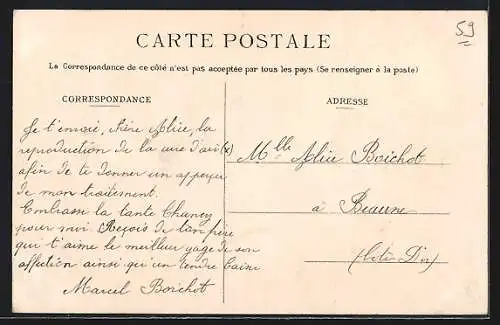 59
CARTE POSTALE
La Correspondance de ce côté n'est pas acceptée par tous les pays (Se renseigner à la poste)
CORRESPONDANCE
ADRESSE
Je t'envoie, chère Alice, la
reproduction de la cure d'air (x)
afin de te donner un aperçu
de mon traitement.
Embrasse la tante
pour moi. Reçois de ton père
qui t'aime le meilleur gage de son
affection ainsi qu'un tendre baiser
Marcel Boichot
Mlle Alice Boichot
à Beaune
(Côte D'or)